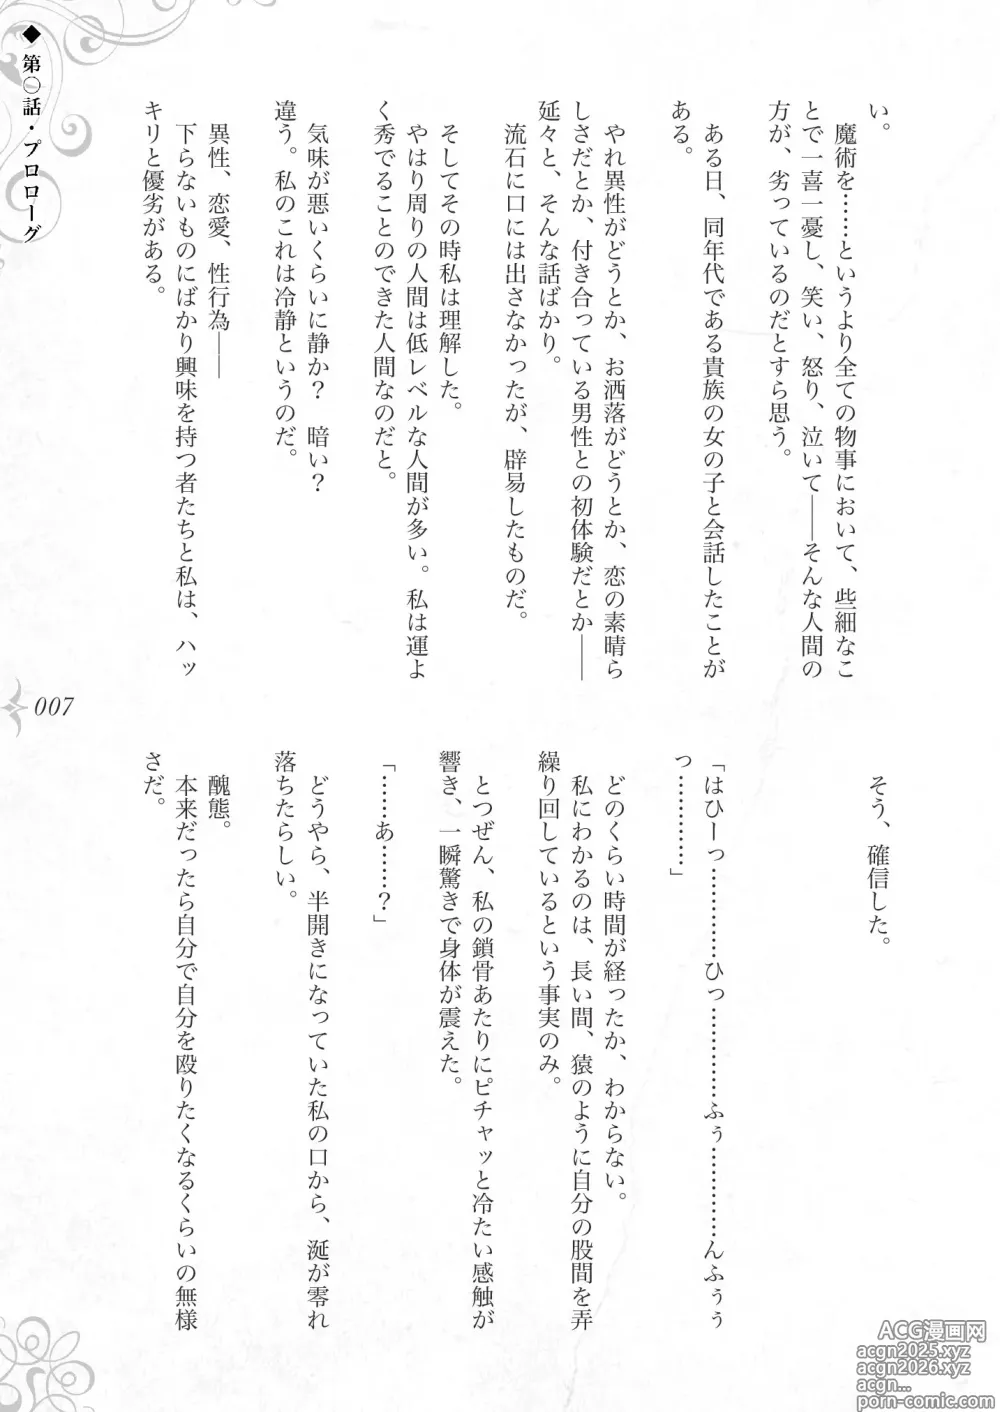 ◆ 第〇話・プロローグ
い。
　魔術を……というより全ての物事において、些細なこ
とで一喜一憂し、笑い、怒り、泣いて――そんな人間の
方が、劣っているのだとすら思う。
　ある日、同年代である貴族の女の子と会話したことが
ある。
　やれ異性がどうとか、お洒落がどうとか、恋の素晴ら
しさだとか、付き合っている男性との初体験だとか――
延々と、そんな話ばかり。
　流石に口には出さなかったが、辟易したものだ。
　そしてその時私は理解した。
　やはり周りの人間は低レベルな人間が多い。私は運よ
く秀でることのできた人間なのだと。
　気味が悪いくらいに静か？　暗い？
違う。私のこれは冷静というのだ。
　異性、恋愛、性行為――
　下らないものにばかり興味を持つ者たちと私は、ハッ
キリと優劣がある。
　そう、確信した。
「はひーっ…………ひっ…………ふぅ…………んふぅぅ
っ…………」
　どのくらい時間が経ったか、わからない。
　私にわかるのは、長い間、猿のように自分の股間を弄
繰り回しているという事実のみ。
　とつぜん、私の鎖骨あたりにピチャッと冷たい感触が
響き、一瞬驚きで身体が震えた。
「……あ……？」
　どうやら、半開きになっていた私の口から、涎が零れ
落ちたらしい。
　醜態。
　本来だったら自分で自分を殴りたくなるくらいの無様
さだ。
007
ACG漫画网
acgn2025.xyz
acgn2026.xyz
acgn...
porn-comic.com